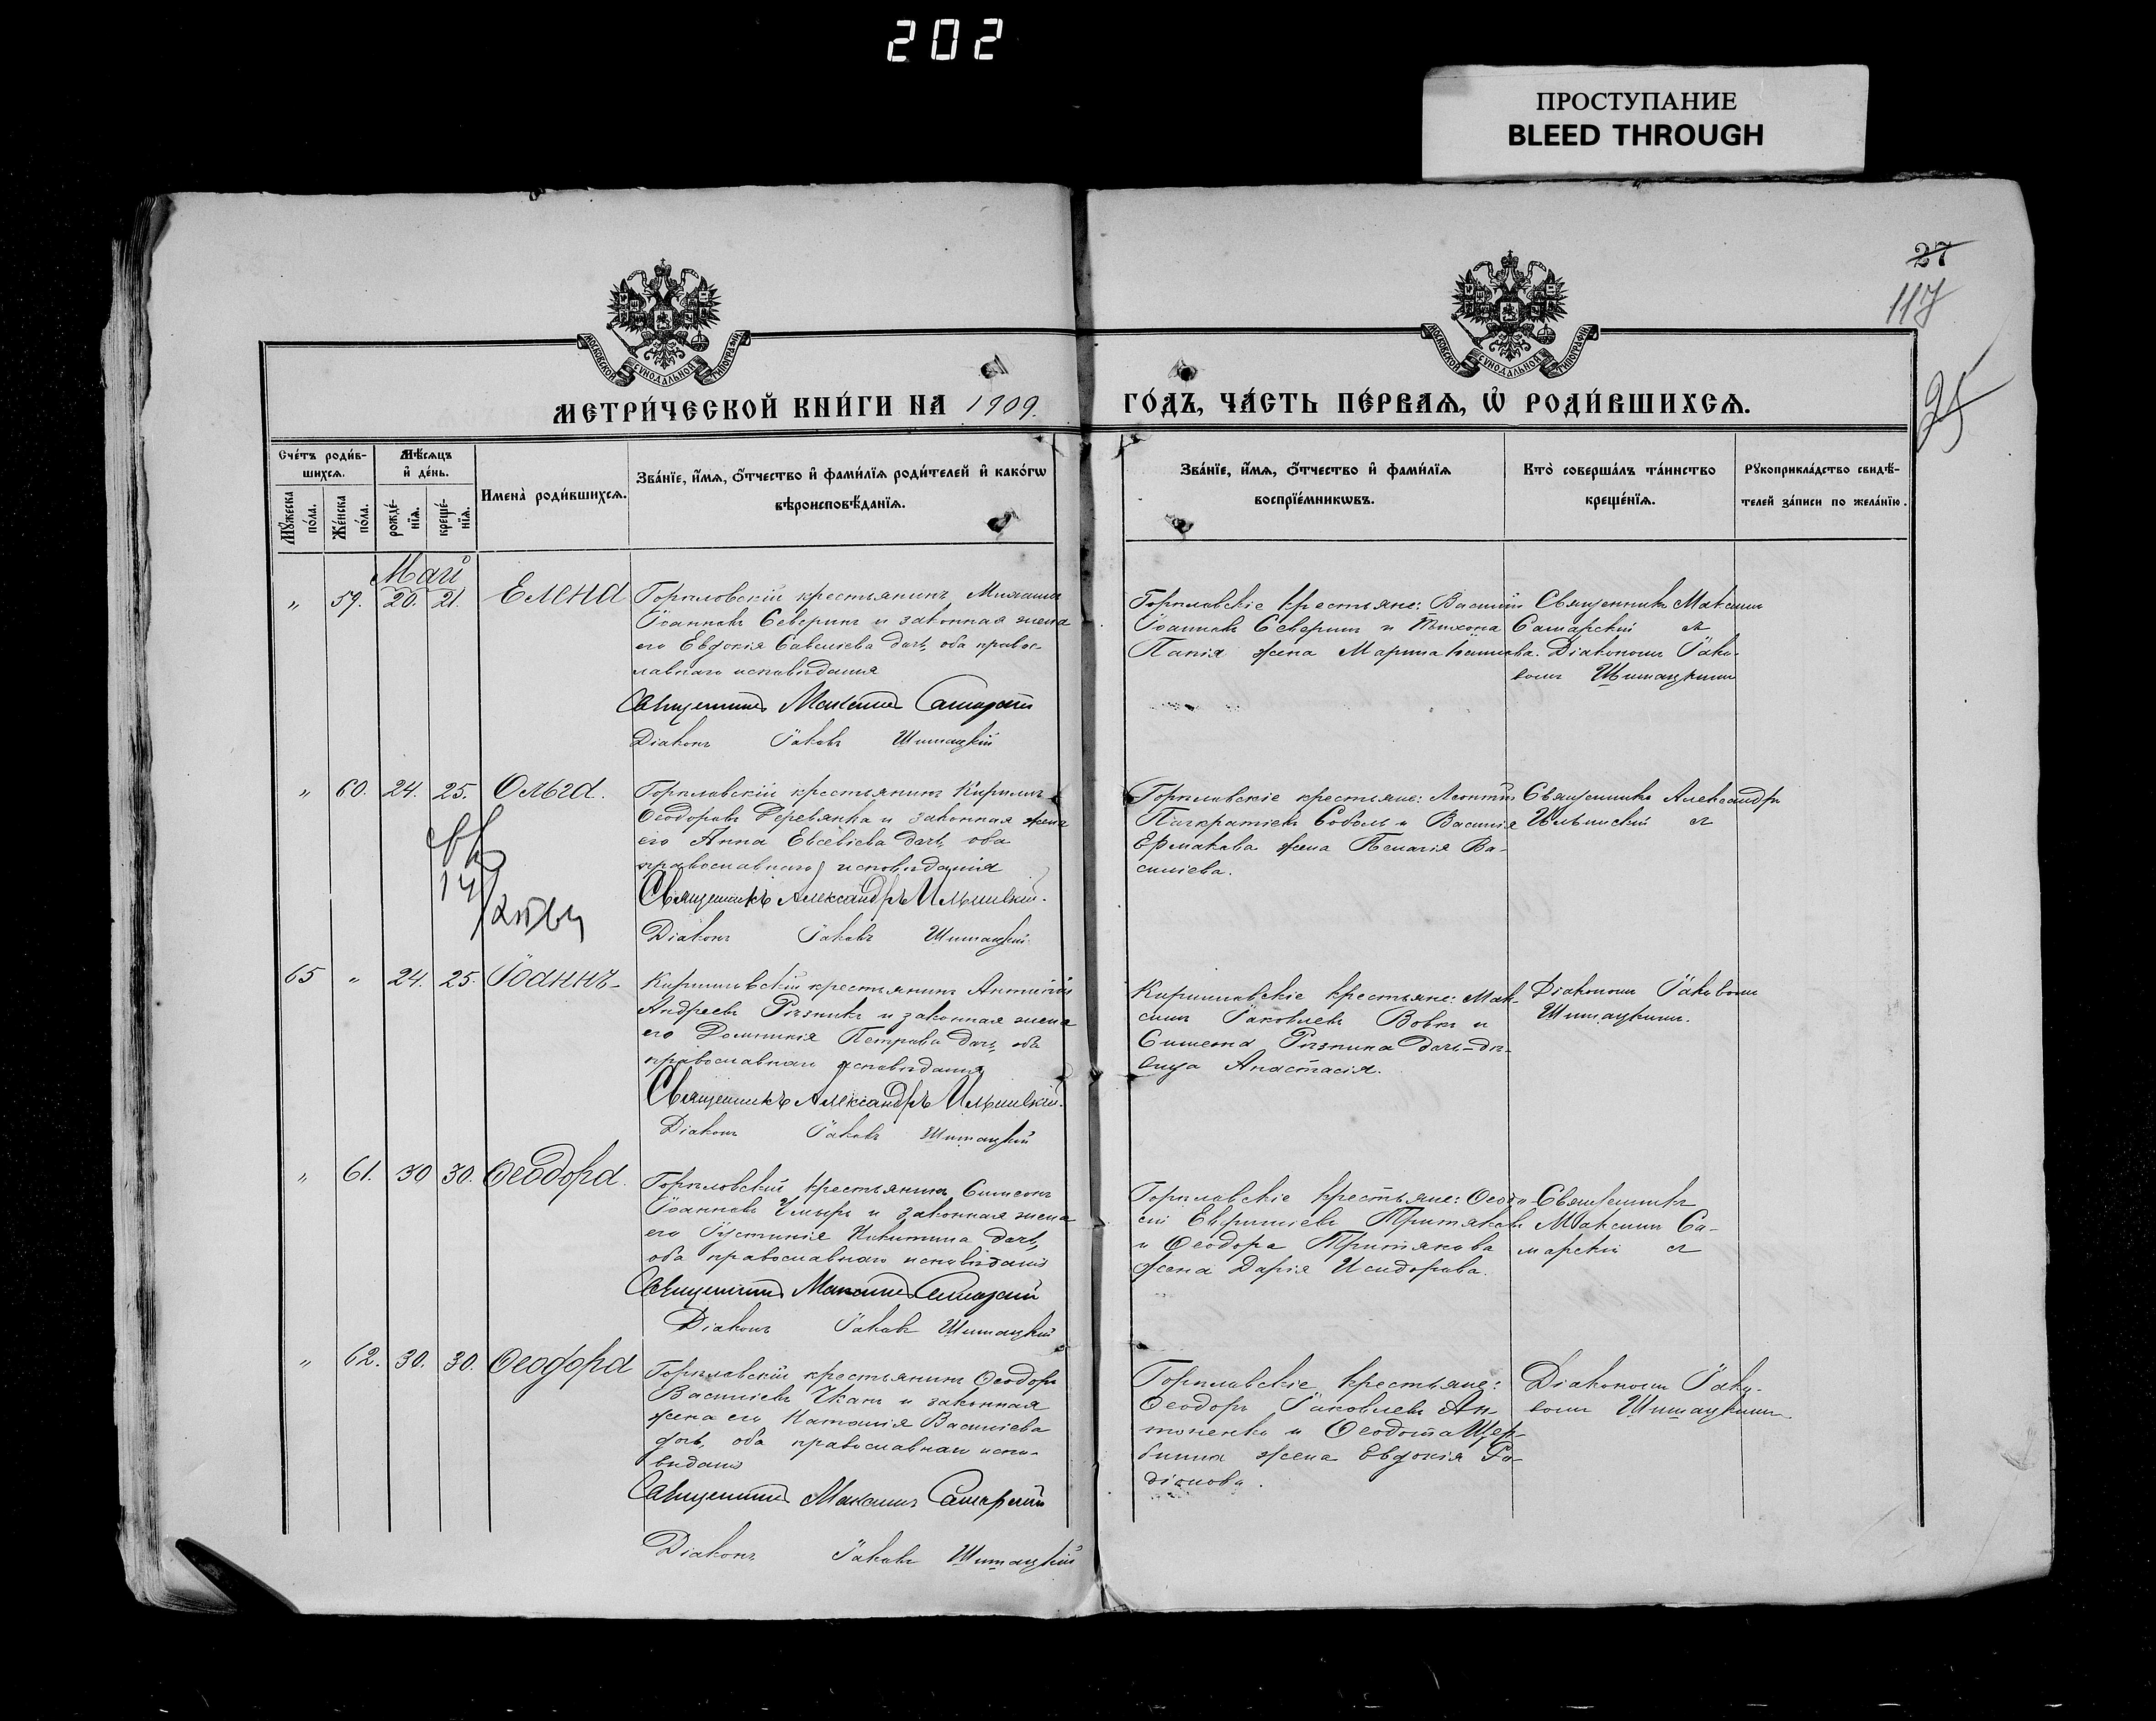 202
ПРОСТУПАНИЕ
BLEED THROUGH
27
117
25
МОСКОВСКОЙ СѴНОДАЛЬНОЙ ТИПОГРАФІИ
МОСКОВСКОЙ СѴНОДАЛЬНОЙ ТИПОГРАФІИ
МЕТРИ́ЧЕСКОЙ КНИ́ГИ НА 1909. ГО́ДЪ, ЧА́СТЬ ПЕ́РВАѦ, Ѡ҆ РОДИ́ВШИХСѦ.
Сче́тъ роди́в-
шихсѧ.
Мꙋ́жеска по́ла.
Же́нска по́ла.
Мѣ́сѧцъ
и҆ де́нь.
рожде́-
нїѧ.
креще́-
нїѧ.
Имена̀ роди́вшихсѧ.
Зва́нїе, и҆́мѧ, ѻ҆́тчество и҆ фами́лїѧ роди́телей и҆ како́гѡ
вѣроисповѣ́данїѧ.
Зва́нїе, и҆́мѧ, ѻ҆́тчество и҆ фами́лїѧ
воспрїе́мникѡвъ.
Кто̀ соверша́лъ та́инство
креще́нїѧ.
Рꙋкоприкла́дство свидѣ́-
телей за́писи по жела́нїю.
Май
" 59. 20. 21. Елена
Горпловскій крестьянинъ Михаилъ
Іоанновъ Северинъ и законная жена
его Евдокія Савеліева дочь, оба правос-
лавнаго исповѣданія
Священникъ Максимъ Самарскій
Діаконъ Іаковъ Шитацкій
Горпловскіе крестьяне: Василій
Іоанновъ Северинъ и Тихона
жена Марина
Священникъ Максимъ
Самарскій съ
Діакономъ Іако-
вомъ Шитацкимъ
" 60. 24. 25. Ольга.
Горпловскій крестьянинъ Кириллъ
Ѳеодоровъ Деревянка и законная жена
его Анна Евсевіева дочь, оба
православнаго исповѣданія
Священникъ Александръ Ильинскій.
Діаконъ Іаковъ Шитацкій
Горпловскіе крестьяне: Леонтій
Панкратіевъ Соболь и Василія
Ермакова жена Пелагія Ва-
силіева.
Священникъ Александръ
Ильинскій
65 " 24. 25. Іоаннъ
Кирилловскій крестьянинъ
Андреевъ Рѣзникъ и законная жена
его Домникія Петрова дочь, оба
православнаго исповѣданія
Священникъ Александръ Ильинскій.
Діаконъ Іаковъ Шитацкій
Кирилловскіе крестьяне: Мак-
симъ Іаковлевъ Вовкъ и
Симеона Рѣзника дочь-дѣ-
вица Анастасія.
Діакономъ Іаковомъ
Шитацкимъ.
" 61. 30 30. Ѳеодора.
Горпловскій крестьянинъ Симеонъ
Іоанновъ Чмыръ и законная жена
его Іустинія Никитина дочь,
оба православнаго исповѣданія
Священникъ Максимъ Самарскій
Діаконъ Іаковъ Шитацкій
Горпловскіе крестьяне: Ѳеодо-
сій Третяковъ
и Ѳеодора Третякова
жена Дарія Исидорова.
Священникъ
Максимъ Са-
марскій
" 62. 30. 30. Ѳеодора
Горпловскій крестьянинъ Ѳеодоръ
Василіевъ Чканъ и законная
жена его Наталія Василіева
дочь, оба православнаго испо-
вѣданія
Священникъ Максимъ Самарскій
Діаконъ Іаковъ Шитацкій
Горпловскіе крестьяне:
Ѳеодоръ Іаковлевъ Ан-
тоненко и Ѳеодота Щер-
бины жена Евдокія Ро-
діонова.
Діакономъ Іако-
вомъ Шитацкимъ